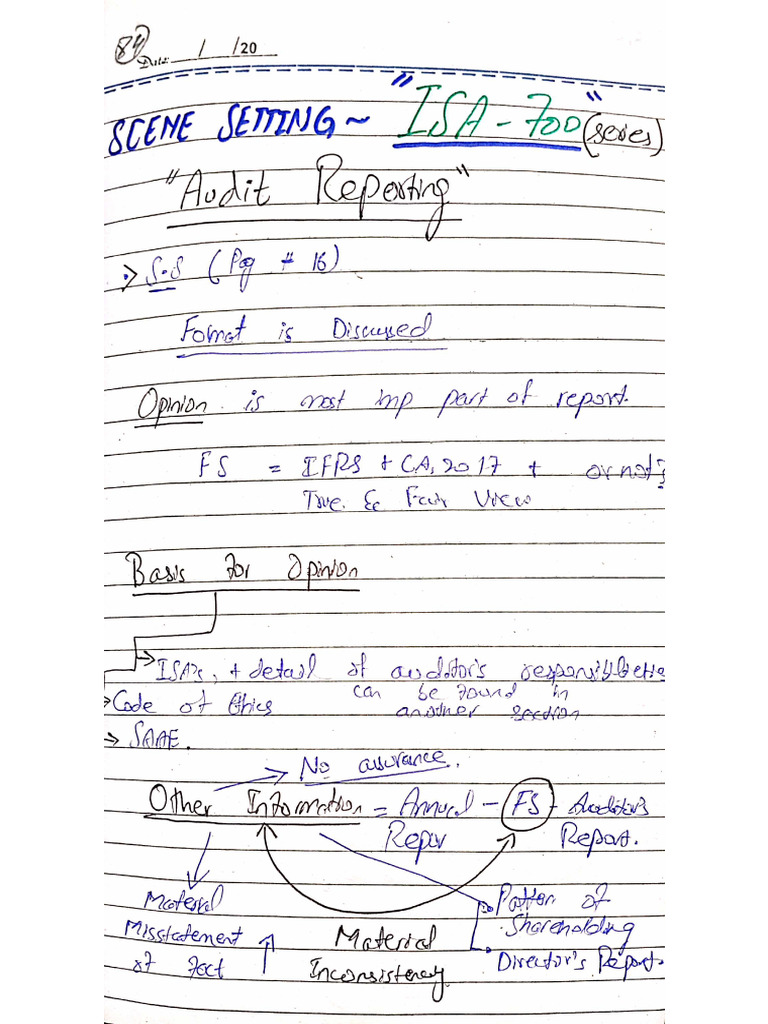 84
Date: / /20
SCENE SETTING ~ "ISA - 700" (series)
"Audit Reporting"
S.S (Pg # 16)
Format is Discussed
Opinion is most imp part of report.
FS = IFRS + CA, 2017 + or not?
True & Fair View
Basis for Opinion
→ ISA's, + detail of auditor's responsibilities
→ Code of Ethics can be found in
another section
→ SAAE.
→ No assurance.
Other Information = Annual - FS - Auditor's
Repor Report.
Material Patter of
Misstatement ↑ Material Shareholding
of fact Inconsistency Director's Report